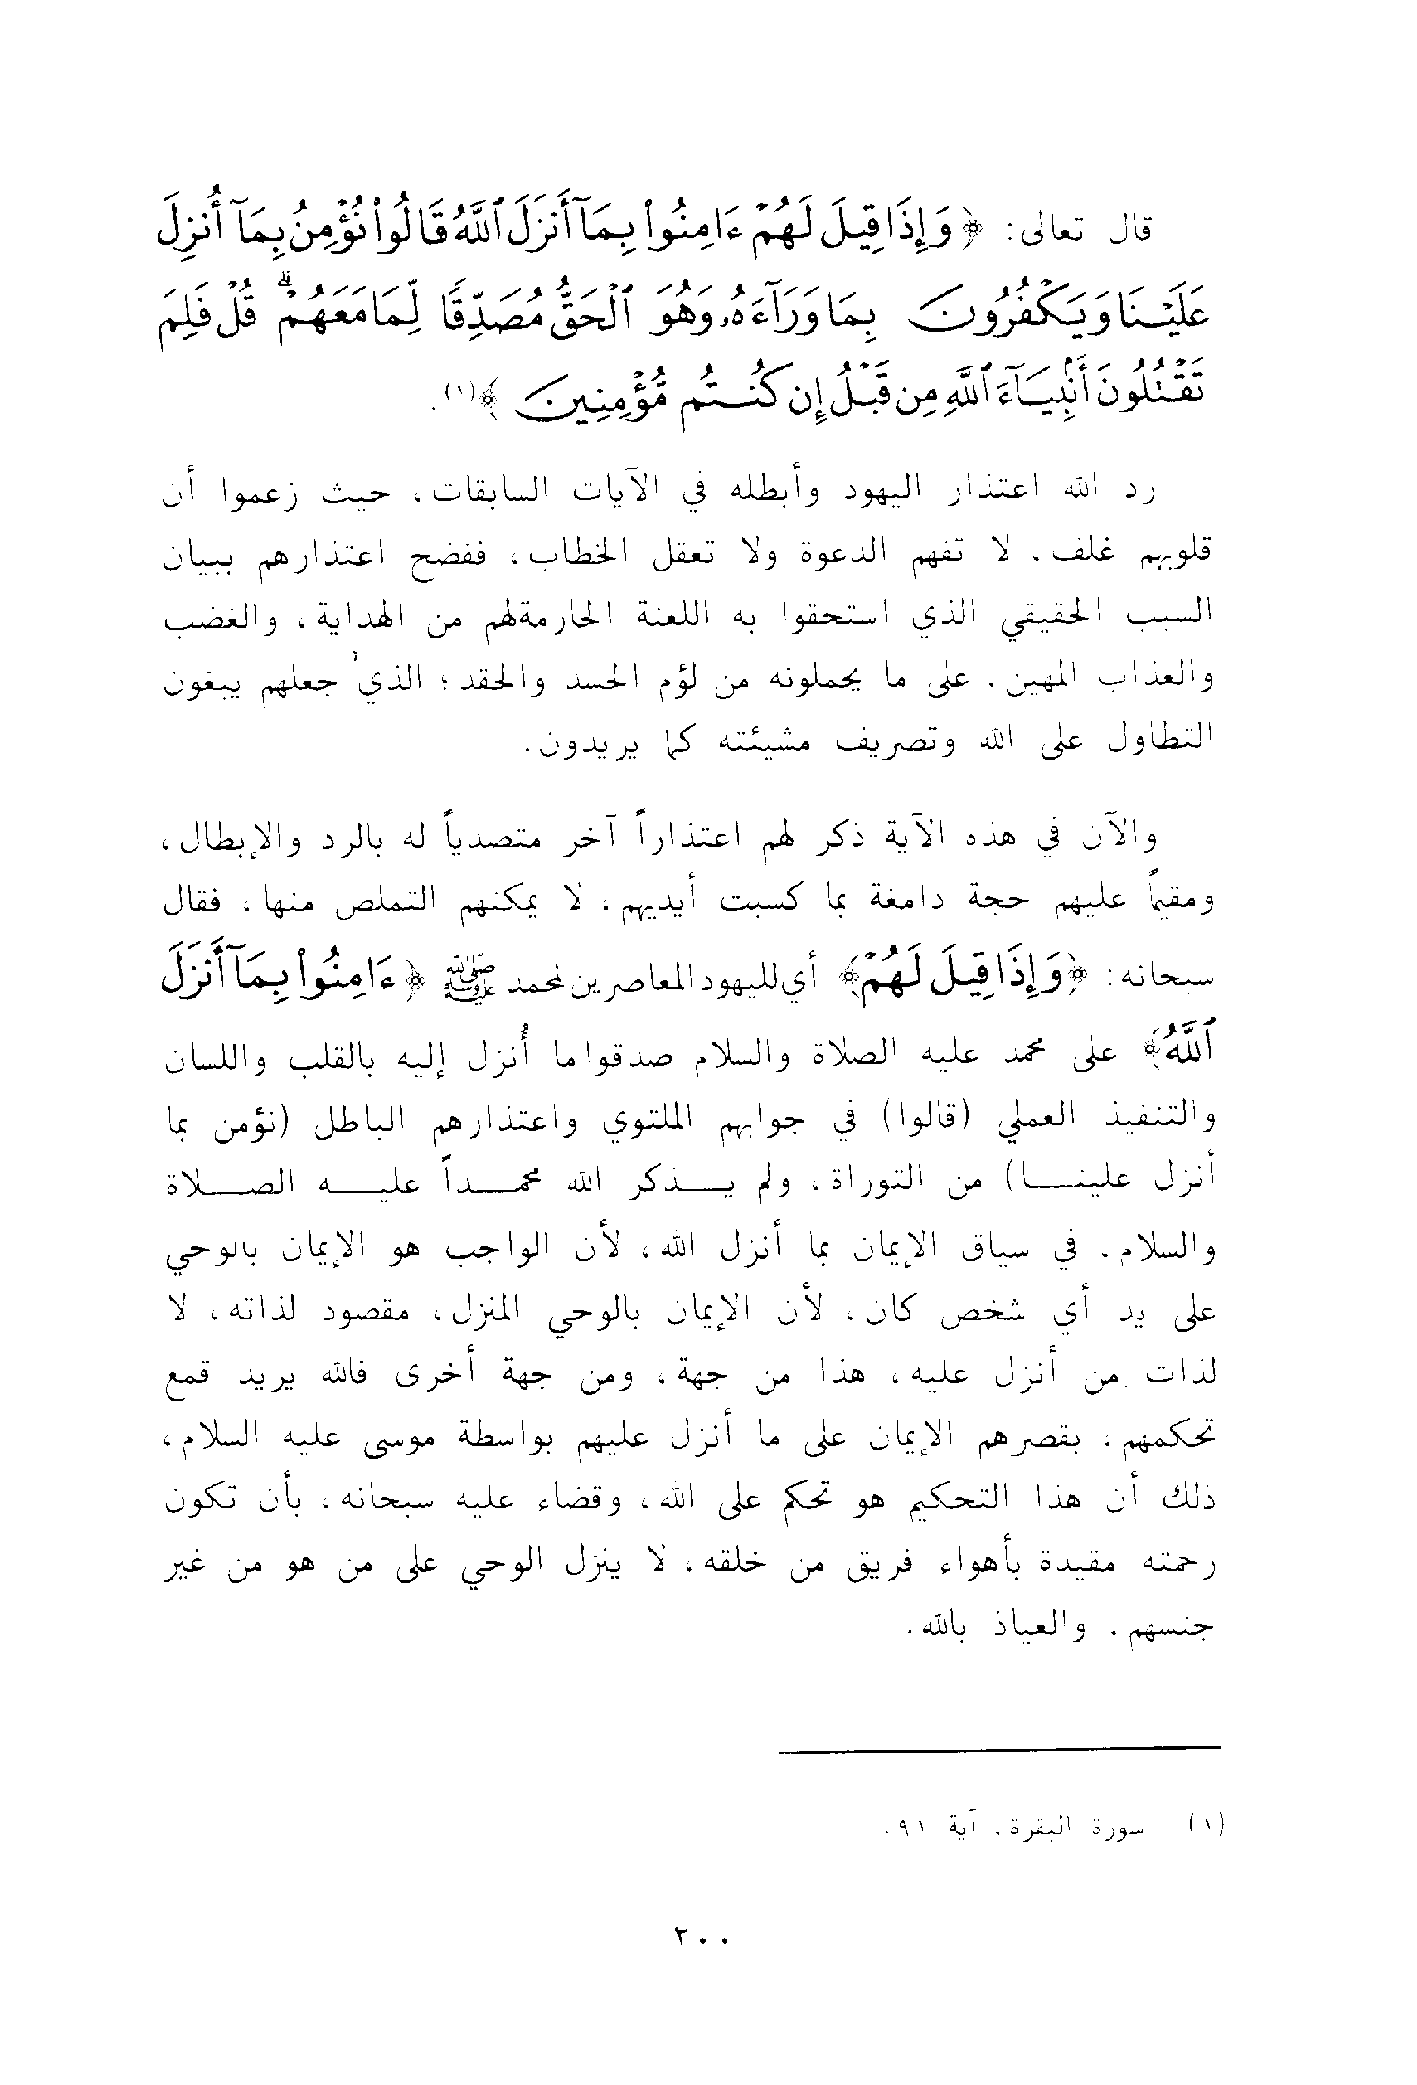 قال تعالى: ﴿وَإِذَا قِيلَ لَهُمْ ءَامِنُوا۟ بِمَآ أَنزَلَ ٱللَّهُ قَالُوا۟ نُؤْمِنُ بِمَآ أُنزِلَ
عَلَيْنَا وَيَكْفُرُونَ بِمَا وَرَآءَهُۥ وَهُوَ ٱلْحَقُّ مُصَدِّقًا لِّمَا مَعَهُمْ ۗ قُلْ فَلِمَ
تَقْتُلُونَ أَنۢبِيَآءَ ٱللَّهِ مِن قَبْلُ إِن كُنتُم مُّؤْمِنِينَ﴾(١).
رد الله اعتذار اليهود وأبطله في الآيات السابقات، حيث زعموا أن
قلوبهم غلف. لا تفهم الدعوة ولا تعقل الخطاب، ففضح اعتذارهم ببيان
السبب الحقيقي الذي استحقوا به اللعنة الحارمة لهم من الهداية، والغضب
والعذاب المهين. على ما يحملونه من لؤم الحسد والحقد؛ الذي جعلهم يبغون
التطاول على الله وتصريف مشيئته كما يريدون.
والآن في هذه الآية ذكر لهم اعتذاراً آخر متصدياً له بالرد والإبطال،
ومقيماً عليهم حجة دامغة بما كسبت أيديهم، لا يمكنهم التملص منها، فقال
سبحانه: ﴿وَإِذَا قِيلَ لَهُمْ﴾ أي لليهود المعاصرين لمحمد ﷺ ﴿ءَامِنُوا۟ بِمَآ أَنزَلَ
ٱللَّهُ﴾ على محمد عليه الصلاة والسلام صدقوا ما أُنزل إليه بالقلب واللسان
والتنفيذ العملي (قالوا) في جوابهم الملتوي واعتذارهم الباطل (نؤمن بما
أنزل علينـا) من التوراة، ولم يـذكر الله محمـداً عليـه الصـلاة
والسلام. في سياق الإيمان بما أنزل الله، لأن الواجب هو الإيمان بالوحي
على يد أي شخص كان، لأن الإيمان بالوحي المنزل، مقصود لذاته، لا
لذات من أنزل عليه، هذا من جهة، ومن جهة أخرى فالله يريد قمع
تحكمهم، بقصرهم الإيمان على ما أنزل عليهم بواسطة موسى عليه السلام،
ذلك أن هذا التحكيم هو تحكم على الله، وقضاء عليه سبحانه، بأن تكون
رحمته مقيدة بأهواء فريق من خلقه، لا ينزل الوحي على من هو من غير
جنسهم. والعياذ بالله.
(١) سورة البقرة. آية ٩١.
٢٠٠